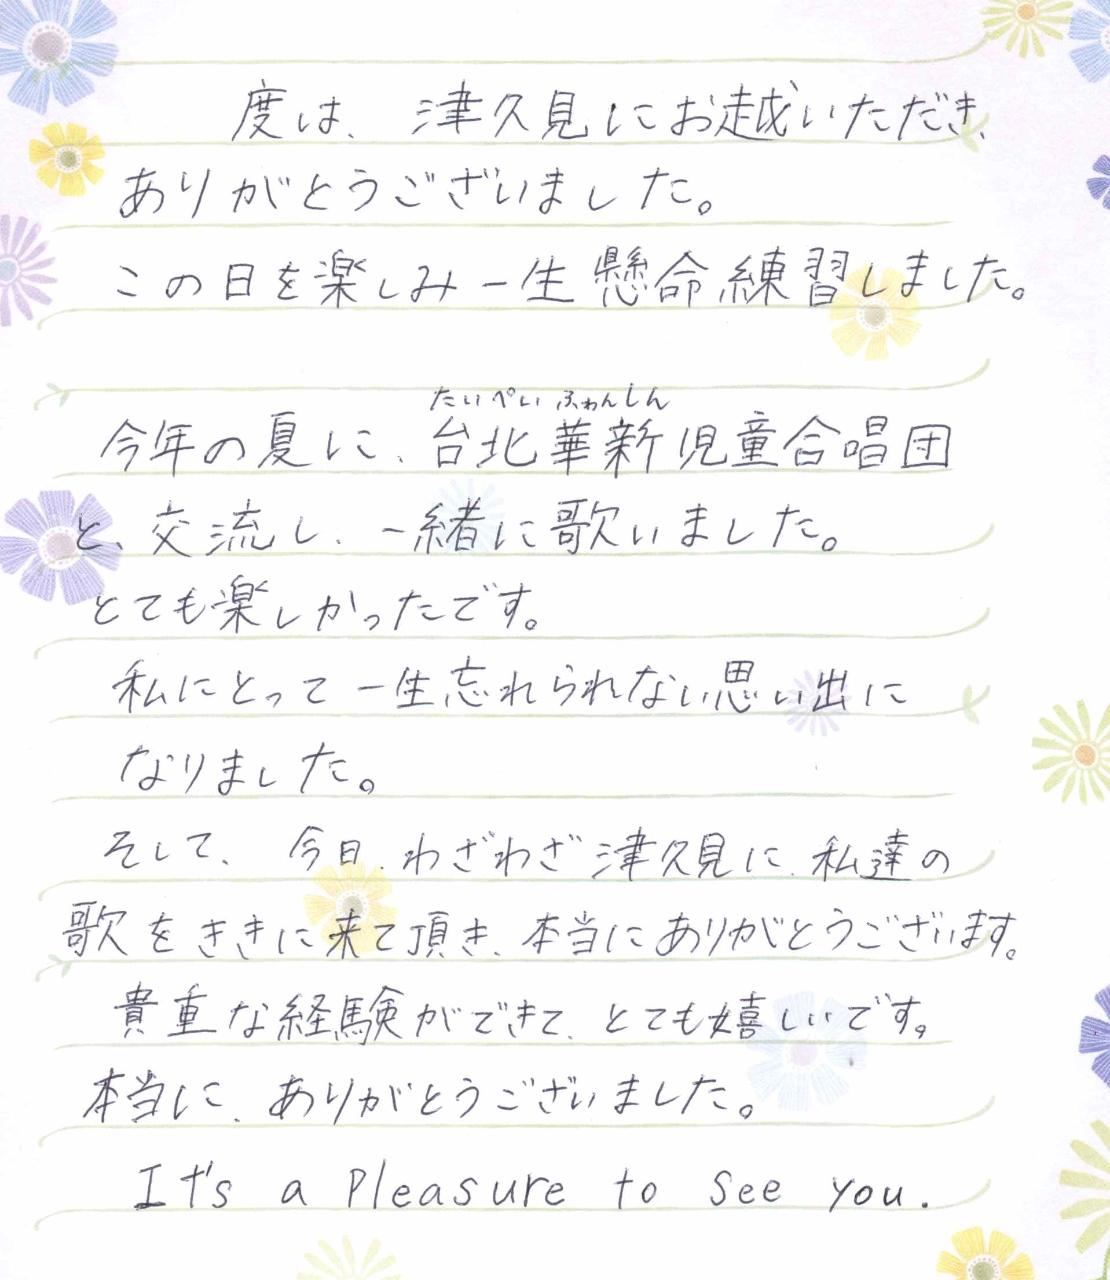 度は、津久見にお越いただき、
ありがとうございました。
この日を楽しみ一生懸命練習しました。
たいぺいふぁんしん
今年の夏に、台北華新児童合唱団
と、交流し、一緒に歌いました。
とても楽しかったです。
私にとって一生忘れられない思い出に
なりました。
そして、今日、わざわざ津久見に、私達の
歌をききに来て頂き、本当にありがとうございます。
貴重な経験ができて、とても嬉しいです。
本当に、ありがとうございました。
It's a Pleasure to see you.